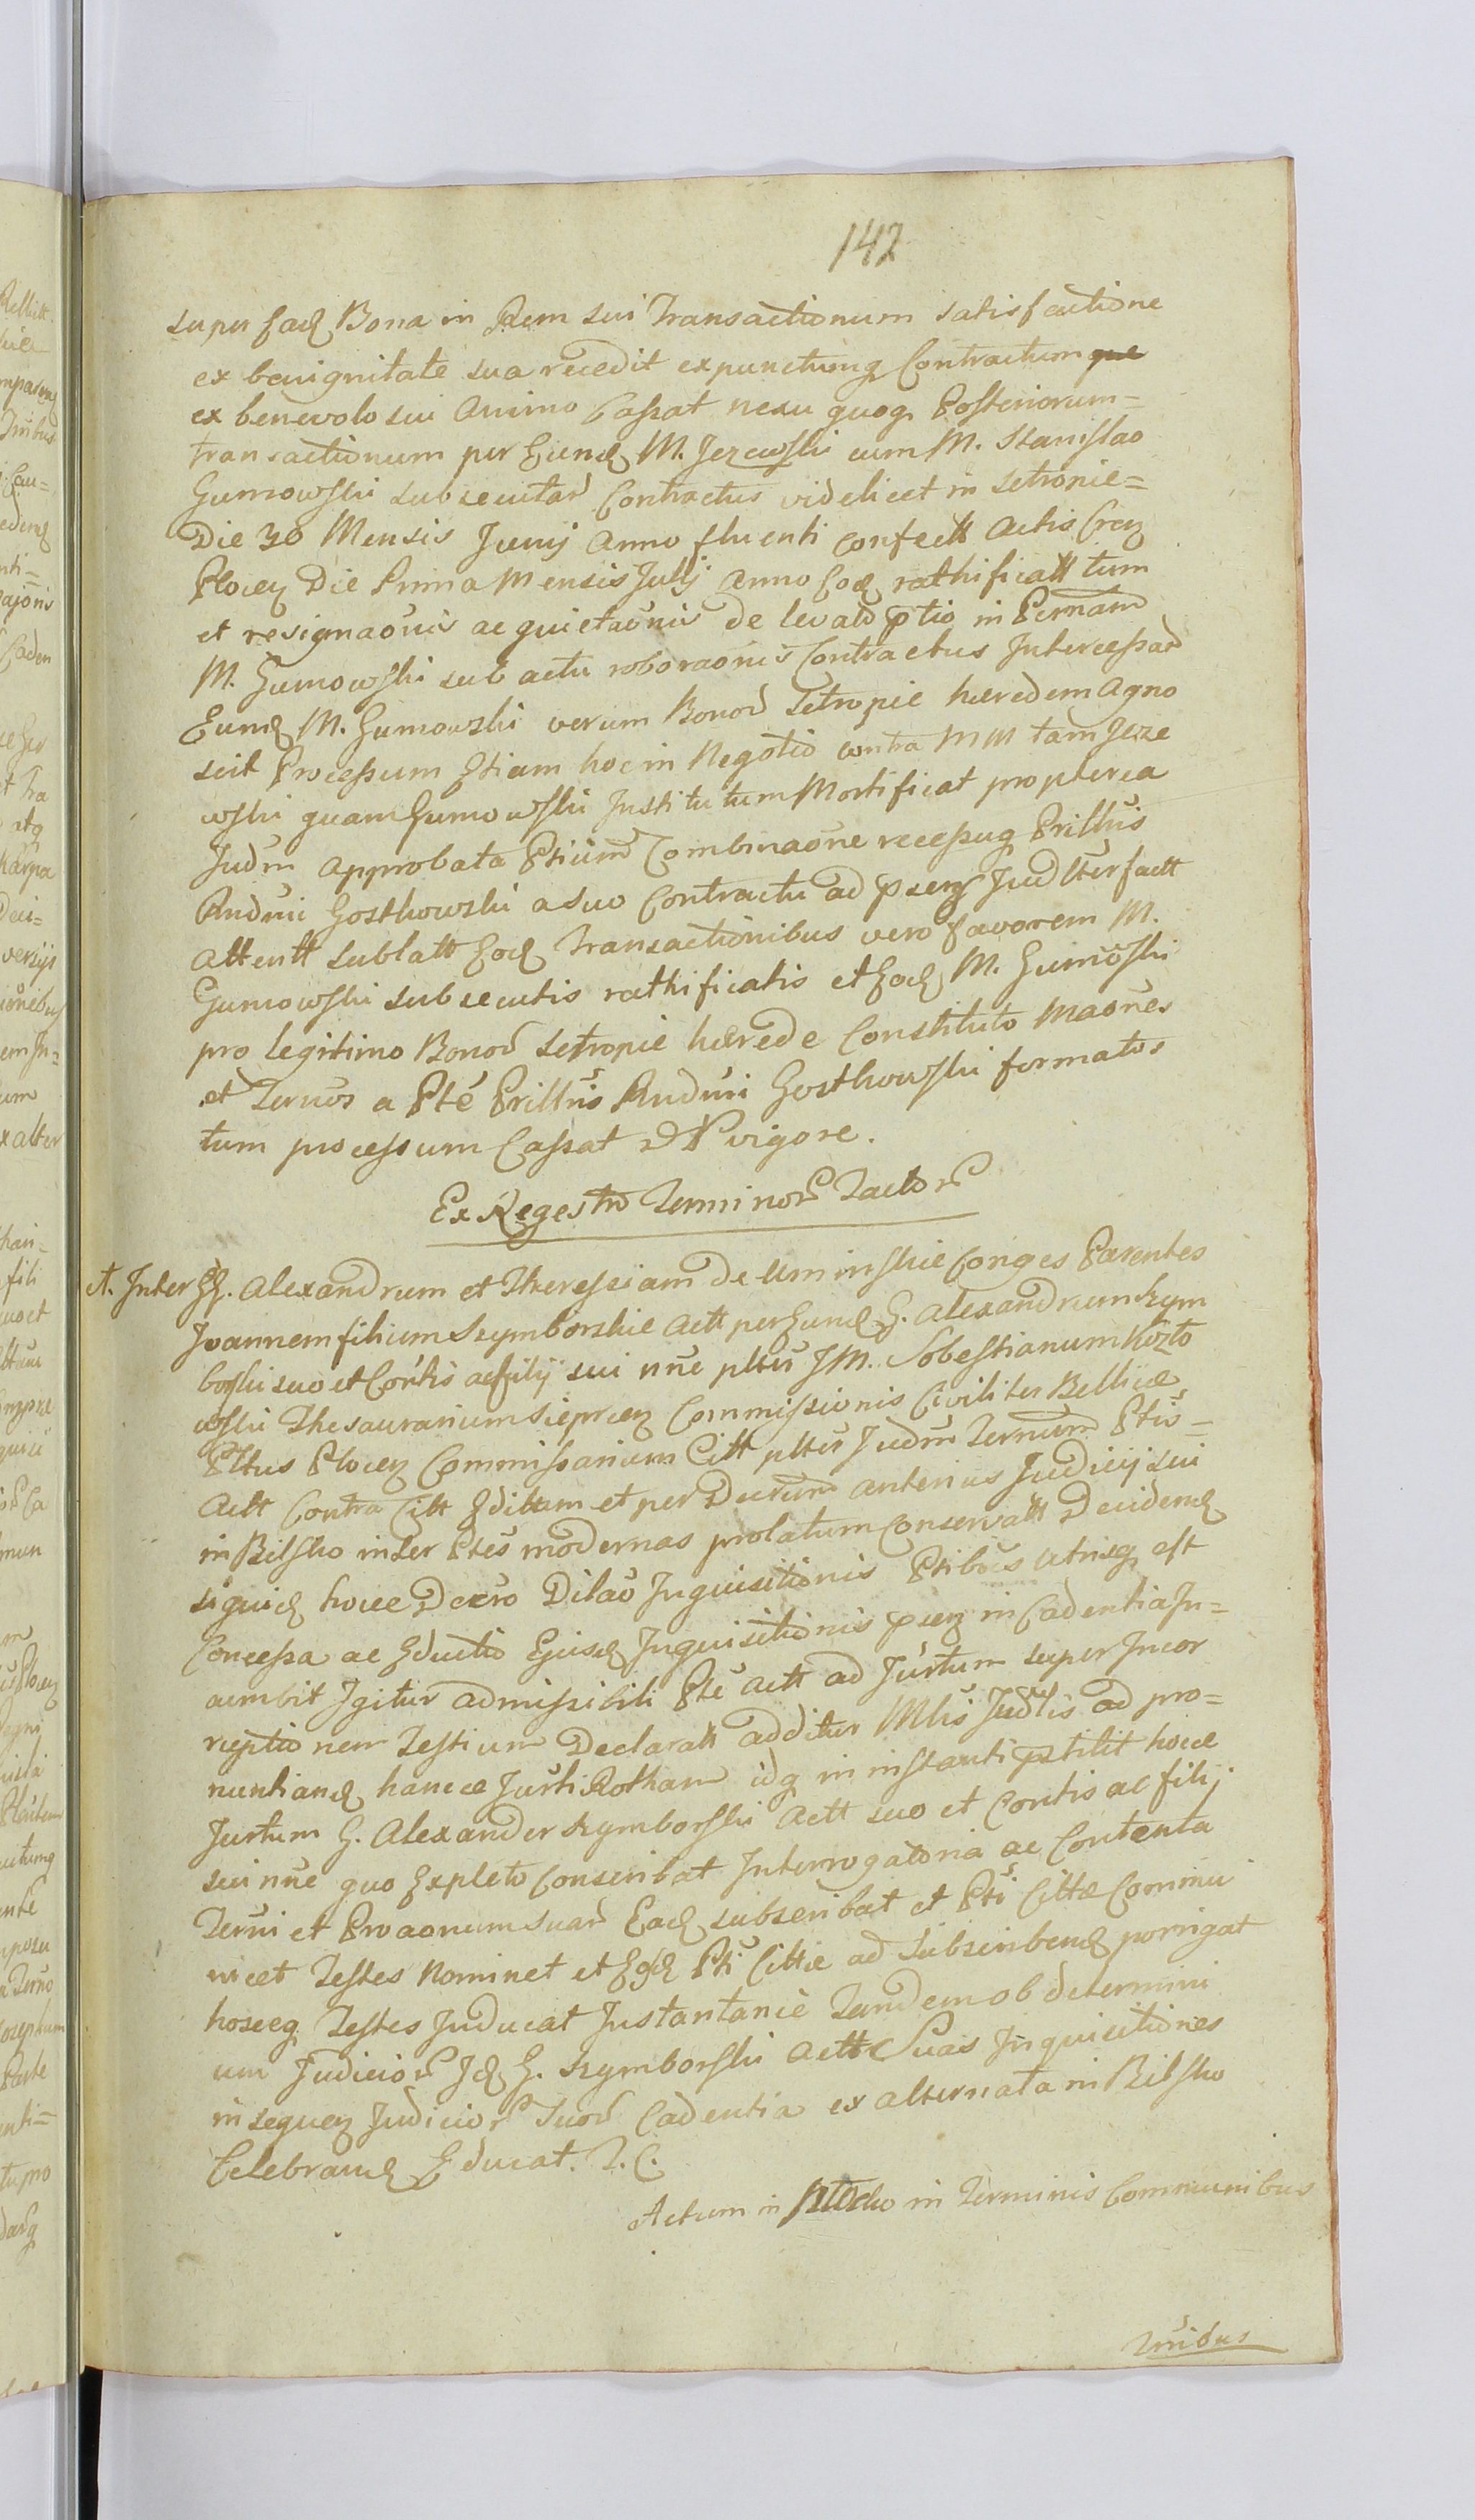 142
super Eadq Bona in Rem sui Transactionum satisfactione
ex benignitate sua recedit expunctumq Contractum que
ex benevolo sui Animo Cassat nexu quoq Posteriorum=
transactionum per Eundq M. Jezewski cum M. Stanislao
Gumowski subsecutar Contractus videlicet in Setropie=
Die 30 Mensis Junij Anno fluenti confectt Actis Cren
Plocen Die Prima Mensis Julij Anno Eodq rathificatt tum
et resignaõnis ac quietaõnis De levato ptio in Pernam
M. Gumowski sub actu roboraõnis Contractus Intercessar
Eundq M. Gumowski verum Bonor Setropie hæredem Agno
scit Processum Etiam hoc in Negotio contra MM tam Jeze
wski quam Gumowski Institutum Mortificat propterea
Judm approbata Ptium Combinaõne recessuq Prillus
Rndmi Gosthowski a suo Contractu ad psens Judlter factt
attentt sublatt Eodq Transactionibus vero favorem M.
Gumowski subsecutis rathificatis et Eodq M. Gumowski
pro legitimo Bonor Setropie hærede Constituto Maões
et Termos a Pte Prillris Rndmi Gosthowski formatos
tum processum Cassat D P vigore.
Ex Regestro Terminor Tactor
A. Inter GG. Alexandrum et Theressiam De Uminskie Conges Parentes
Joannem filium Szymborskie Actt per Eundq G. Alexandrum Szym
borski suo et Contis ac filij sui nne pltus JM. Sobestianum Kozło
wski Thesaurarium Sieprcen Commissionis Civiliter Bellicæ
Pltus Plocen Commissarium Citt pltus Judm Termum Ptis=
Actt Contra Citt Edittum et per Decrum anterius Judicij sui
in Bilsko inter Ptes modernas prolatum Conservatt Decidendq
siquidq hocce Decro Dilao Inquisitionis Ptibus utrisq est
Concessa ac Eductio Ejusdq Inquisitionis psen in Cadentia In=
cumbit Igitur admissibili Pte Actt ad Jurtum super Incor
ruptionem Testium Declaratt additur Mlis Judlis ad pro=
nuntiandq hancce Jurti Rotham idq in instanti pstitit hocce
Jurtum G. Alexander Szymborski Actt suo et Contis ac filij
sui nne quo Expleto Conscribat Interrogatoria ac Contenta
Termi et Proaonum suar Eadq subscribat et Pti Cittæ Commu
nicet Testes Nominet et Eosdq Pti Cittæ ad Subscribendq porrigat
hosceq Testes Inducat Instantanie Tandem ob determini
um Judicior Idq G. Szymborski Actt Suas Inquisitiones
in sequen Judicior Suor Cadentia ex alternata in Bilsko
Celebrandq Educat. T. C.
Actum in Płocko in Terminis Communibus
Tmibus